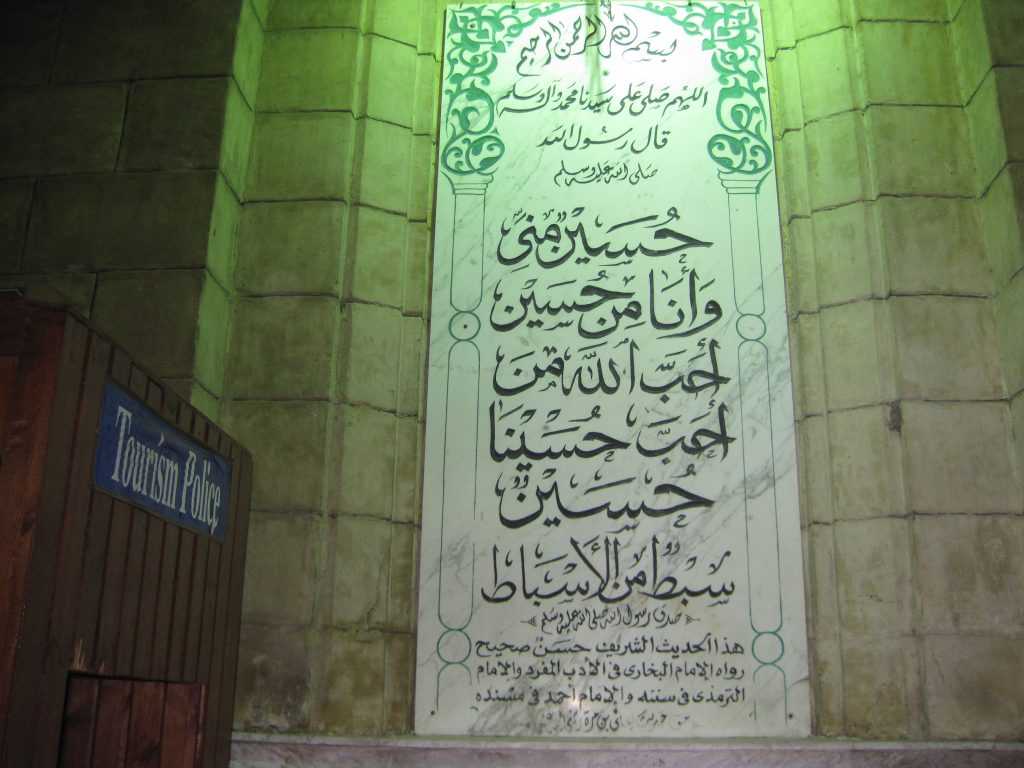 بسم الله الرحمن الرحيم
اللهم صلى على سيدنا محمد وآل وسلم
قال رسول الله
صلى الله عليه وسلم
حُسَيْنٌ مِنِّى
وَأَنَا مِنْ حُسَيْن
أَحَبَّ اللَّهَ مَنْ
أَحَبَّ حُسَيْنَا
حُسَيْنٌ
سِبْطٌ مِنَ الْأَسْبَاط
صدق رسول الله صلى الله عليه وسلم
هذا الحديث الشريف حَسَنٌ صحيح
رواه الإمام البخارى فى الأدب المفرد والإمام
الترمذى فى سننه والإمام أحمد فى مسنده
Tourism Police